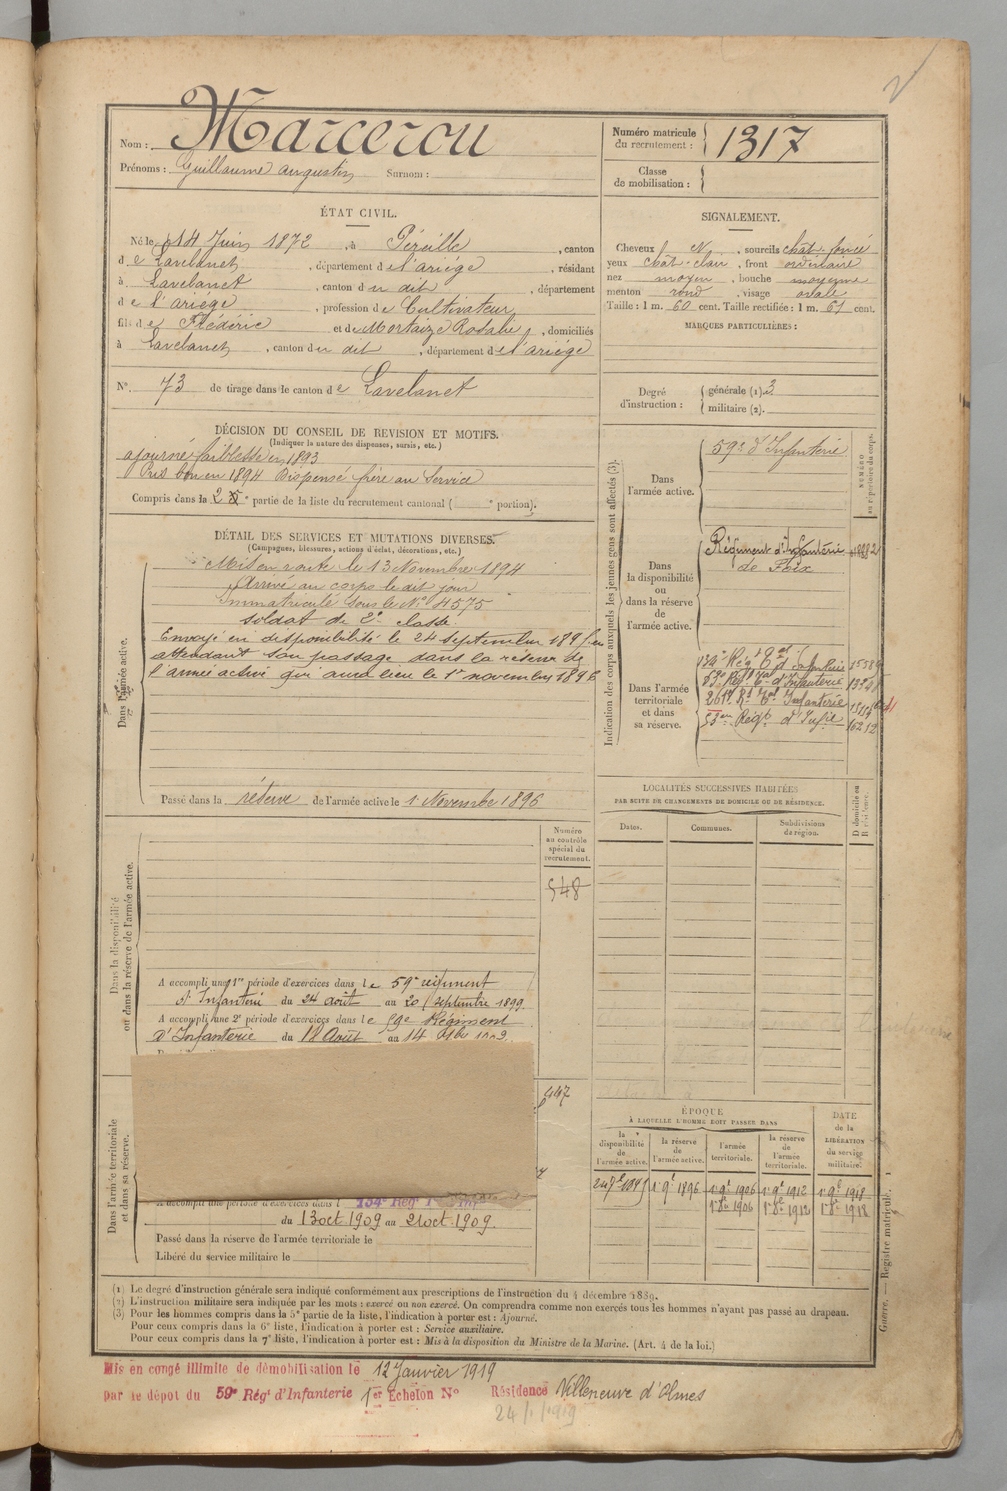 Nom : Marcerou
Prénoms : Guillaume Augustin Surnom :
Numéro matricule du recrutement : 1317
Classe de mobilisation :
ÉTAT CIVIL.
Né le 14 Juin 1872, à Péreille, canton
de Lavelanet, département de l'ariége, résidant
à Lavelanet, canton du dit, département
de l'ariége, profession de Cultivateur
fils de Frédéric et de Mortaize Rosalie, domiciliés
à Lavelanet, canton du dit, département de l'ariége
N° 73 de tirage dans le canton de Lavelanet
SIGNALEMENT.
Cheveux N, sourcils chât. foncé
yeux chât-clair, front ordinaire
nez moyen, bouche moyenne
menton rond, visage ovale
Taille : 1 m. 60 cent. Taille rectifiée : 1 m. 61 cent.
MARQUES PARTICULIÈRES :
Degré d'instruction :
générale (1) 3
militaire (2).
DÉCISION DU CONSEIL DE REVISION ET MOTIFS.
(Indiquer la nature des dispenses, sursis, etc.)
ajourné faiblesse en 1893
Pris bon en 1894 Dispensé frère au Service
Compris dans la 2e partie de la liste du recrutement cantonal ( e portion).
DÉTAIL DES SERVICES ET MUTATIONS DIVERSES.
(Campagnes, blessures, actions d'éclat, décorations, etc.)
Dans l'armée active.
Mis en route le 13 Novembre 1894
Arrivé au corps le dit jour
Immatriculé sous le N° 4575
soldat de 2e classe
Envoyé en disponibilité le 24 septembre 1895 en
attendant son passage dans la réserve de
l'armée active qui aura lieu le 1er novembre 1896
Passé dans la réserve de l'armée active le 1 Novembre 1896
Indication des corps auxquels les jeunes gens sont affectés (3).
NUMÉRO au répertoire du corps.
Dans l'armée active.
59e d'Infanterie
Dans la disponibilité ou dans la réserve de l'armée active.
Régiment d'Infanterie
de Foix
Dans l'armée territoriale et dans sa réserve.
53em Régt d'Infie
LOCALITÉS SUCCESSIVES HABITÉES
PAR SUITE DE CHANGEMENTS DE DOMICILE OU DE RÉSIDENCE.
Dates. Communes. Subdivisions de région.
D domicile ou R résidence.
Dans la disponibilité ou dans la réserve de l'armée active.
Numéro au contrôle spécial du recrutement.
548
A accompli une 1re période d'exercices dans le 59e régiment
d'Infanterie du 24 août au 20 septembre 1899.
A accompli une 2e période d'exercices dans le 59e Régiment
D'Infanterie du 18 Août au 14
Dans l'armée territoriale et dans sa réserve.
A accompli une période d'exercices dans l 134e Régt
du 13 oct 1909 au 21 oct 1909.
Passé dans la réserve de l'armée territoriale le
Libéré du service militaire le
ÉPOQUE
À LAQUELLE L'HOMME DOIT PASSER DANS
la disponibilité de l'armée active.
la réserve de l'armée active.
l'armée territoriale.
la réserve de l'armée territoriale.
DATE de la LIBÉRATION du service militaire.
24 7e 1895 1er 9e 1896 1er 9e 1906 1er 9e 1912 1er 9e 1918
Guerre. — Registre matricule. 1
(1) Le degré d'instruction générale sera indiqué conformément aux prescriptions de l'instruction du 4 décembre 1889.
(2) L'instruction militaire sera indiquée par les mots : exercé ou non exercé. On comprendra comme non exercés tous les hommes n'ayant pas passé au drapeau.
(3) Pour les hommes compris dans la 5e partie de la liste, l'indication à porter est : Ajourné.
Pour ceux compris dans la 6e liste, l'indication à porter est : Service auxiliaire.
Pour ceux compris dans la 7e liste, l'indication à porter est : Mis à la disposition du Ministre de la Marine. (Art. 4 de la loi.)
Mis en congé illimité de démobilisation le 12 Janvier 1919
par le dépôt du 59e Régt d'Infanterie 1er Echelon N° Résidence Villeneuve d'Olmes